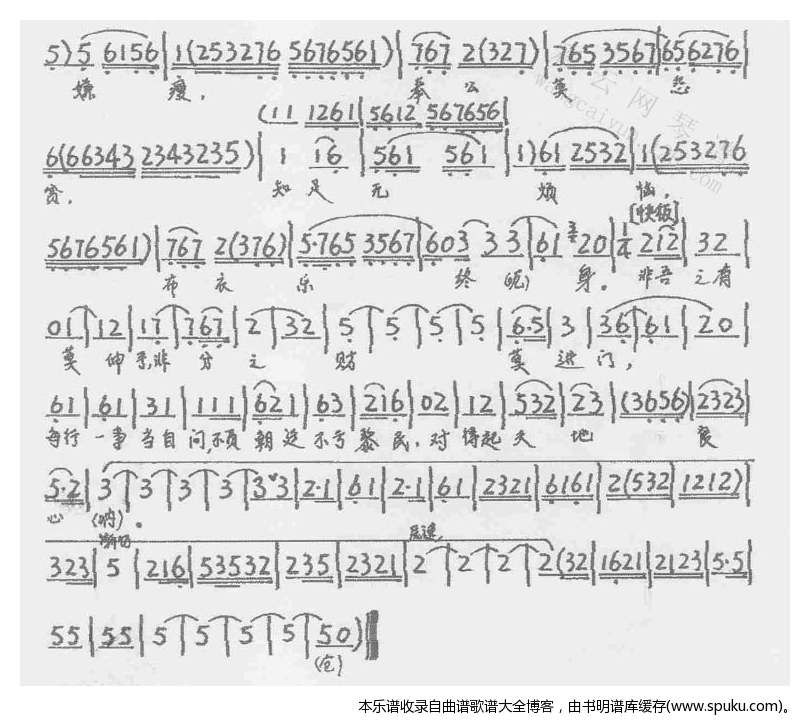 5) 5 6156 | 1 (253276 5676561) | 767 2 (327) | 765 3567 | 656276 |
嫌 瘦， 奉 公 莫 愁
(11 1261 | 5612 567656 |
6 (66343 2343235) | 1 16 | 561 561 | 1) 61 2532 | 1 (253276
贫， 知 足 无 烦 恼，
[快板]
5676561) | 767 2 (376) | 5·765 3567 | 603 3 3 | 61 20 | 1/4 212 | 32 |
布 衣 乐 终 (呃) 身。 非吾 之有
01 | 12 | 17 | 767 | 2 | 32 | 5 | 5 | 5 | 5 | 6·5 | 3 | 36 | 61 | 20 |
莫 伸 手，非 分 之 财 莫 进 门，
61 | 61 | 31 | 111 | 621 | 63 | 216 | 02 | 12 | 532 | 23 | (3656) | 2323 |
每行 一事 当自 问，不负 朝廷 不亏 黎民，对 得起 天 地 良
5·2 | 3 | 3 | 3 | 3 | 3 3 | 2·1 | 61 | 2·1 | 61 | 2321 | 6161 | 2 (532 | 1212) |
心 (呐)。
渐切 尾速
323 | 5 | 216 | 53532 | 235 | 2321 | 2 | 2 | 2 | 2 (32 | 1621 | 2123 | 5·5 |
55 | 55 | 5 | 5 | 5 | 5 | 50) ‖
(仓)
本乐谱收录自曲谱歌谱大全博客，由书明谱库缓存(www.spuku.com)。